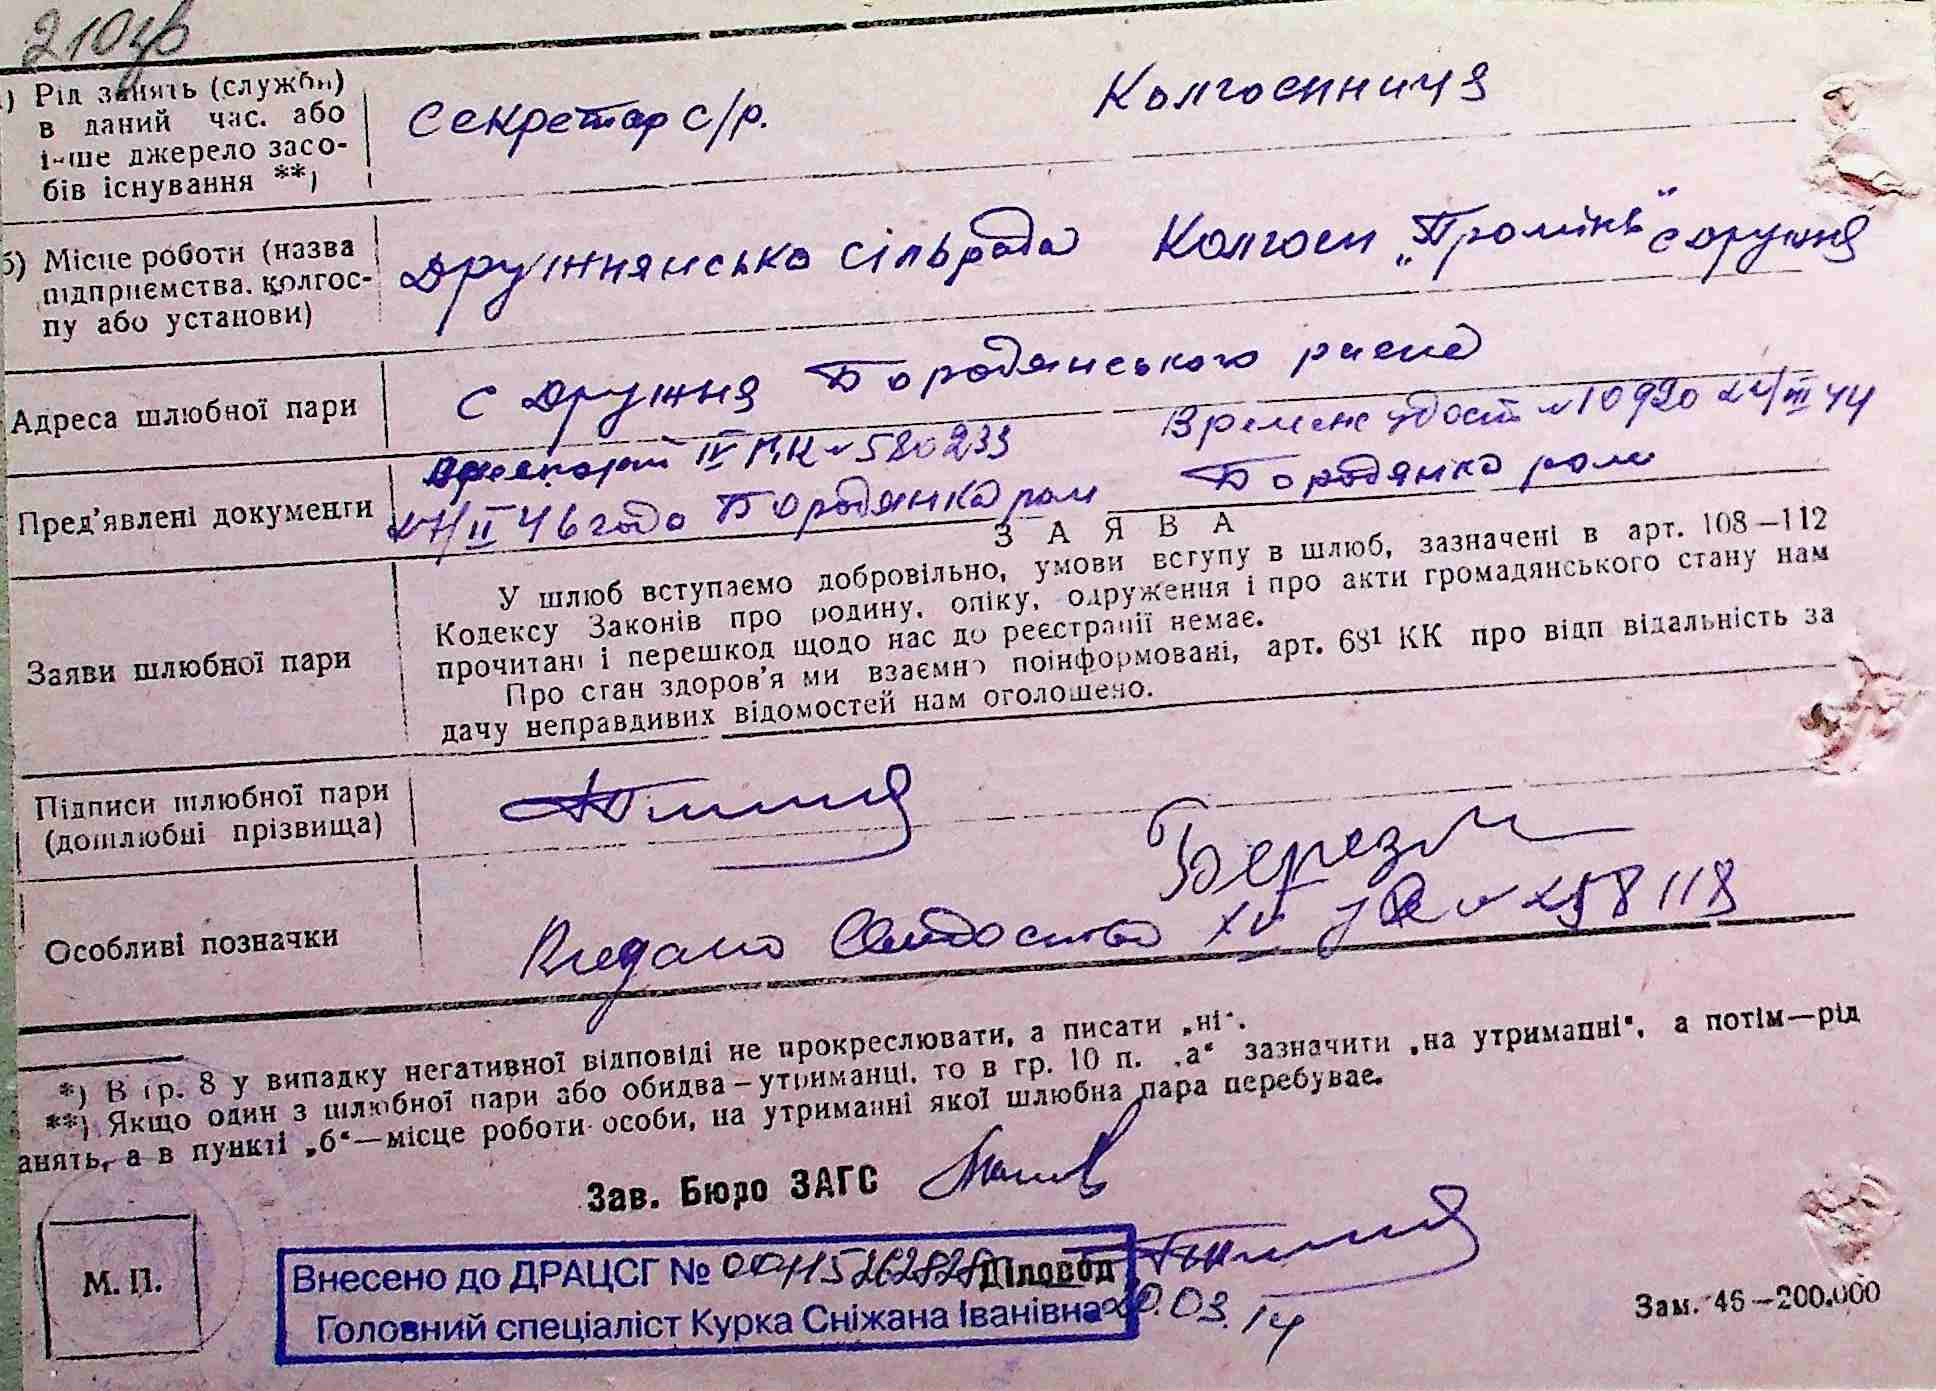 210зв
а) Рід занять (служби) в даний час. або інше джерело засобів існування **)
Секретар с/р. Колгоспниця
б) Місце роботи (назва підприємства. колгоспу або установи)
Дружнянська сільрада Колгосп „Промінь" с Дружня
Адреса шлюбної пари
с Дружня Бородянського района
Пред'явлені документи
IV № 580233 Времене удост №10920 24/III 44
27/II 46 года Бородянка ром Бородянка ром
ЗАЯВА
Заяви шлюбної пари
У шлюб вступаємо добровільно, умови вступу в шлюб, зазначені в арт. 108—112
Кодексу Законів про родину, опіку, одруження і про акти громадянського стану нам
прочитані і перешкод щодо нас до реєстрації немає.
Про стан здоров'я ми взаємно поінформовані, арт. 68¹ КК про відповідальність за
дачу неправдивих відомостей нам оголошено.
Підписи шлюбної пари
(дошлюбні прізвища)
Особливі позначки
Видано Свидоство № 258118
*) В гр. 8 у випадку негативної відповіді не прокреслювати, а писати „ні".
**) Якщо один з шлюбної пари або обидва—утриманці, то в гр. 10 п. „а" зазначити „на утриманні", а потім—рід
анять, а в пункті „б"—місце роботи особи, на утриманні якої шлюбна пара перебуває.
Зав. Бюро ЗАГС
М. П.
Діловод
Внесено до ДРАЦСГ № 00115262828
Головний спеціаліст Курка Сніжана Іванівна 20.03.14
Зам. 46—200.000